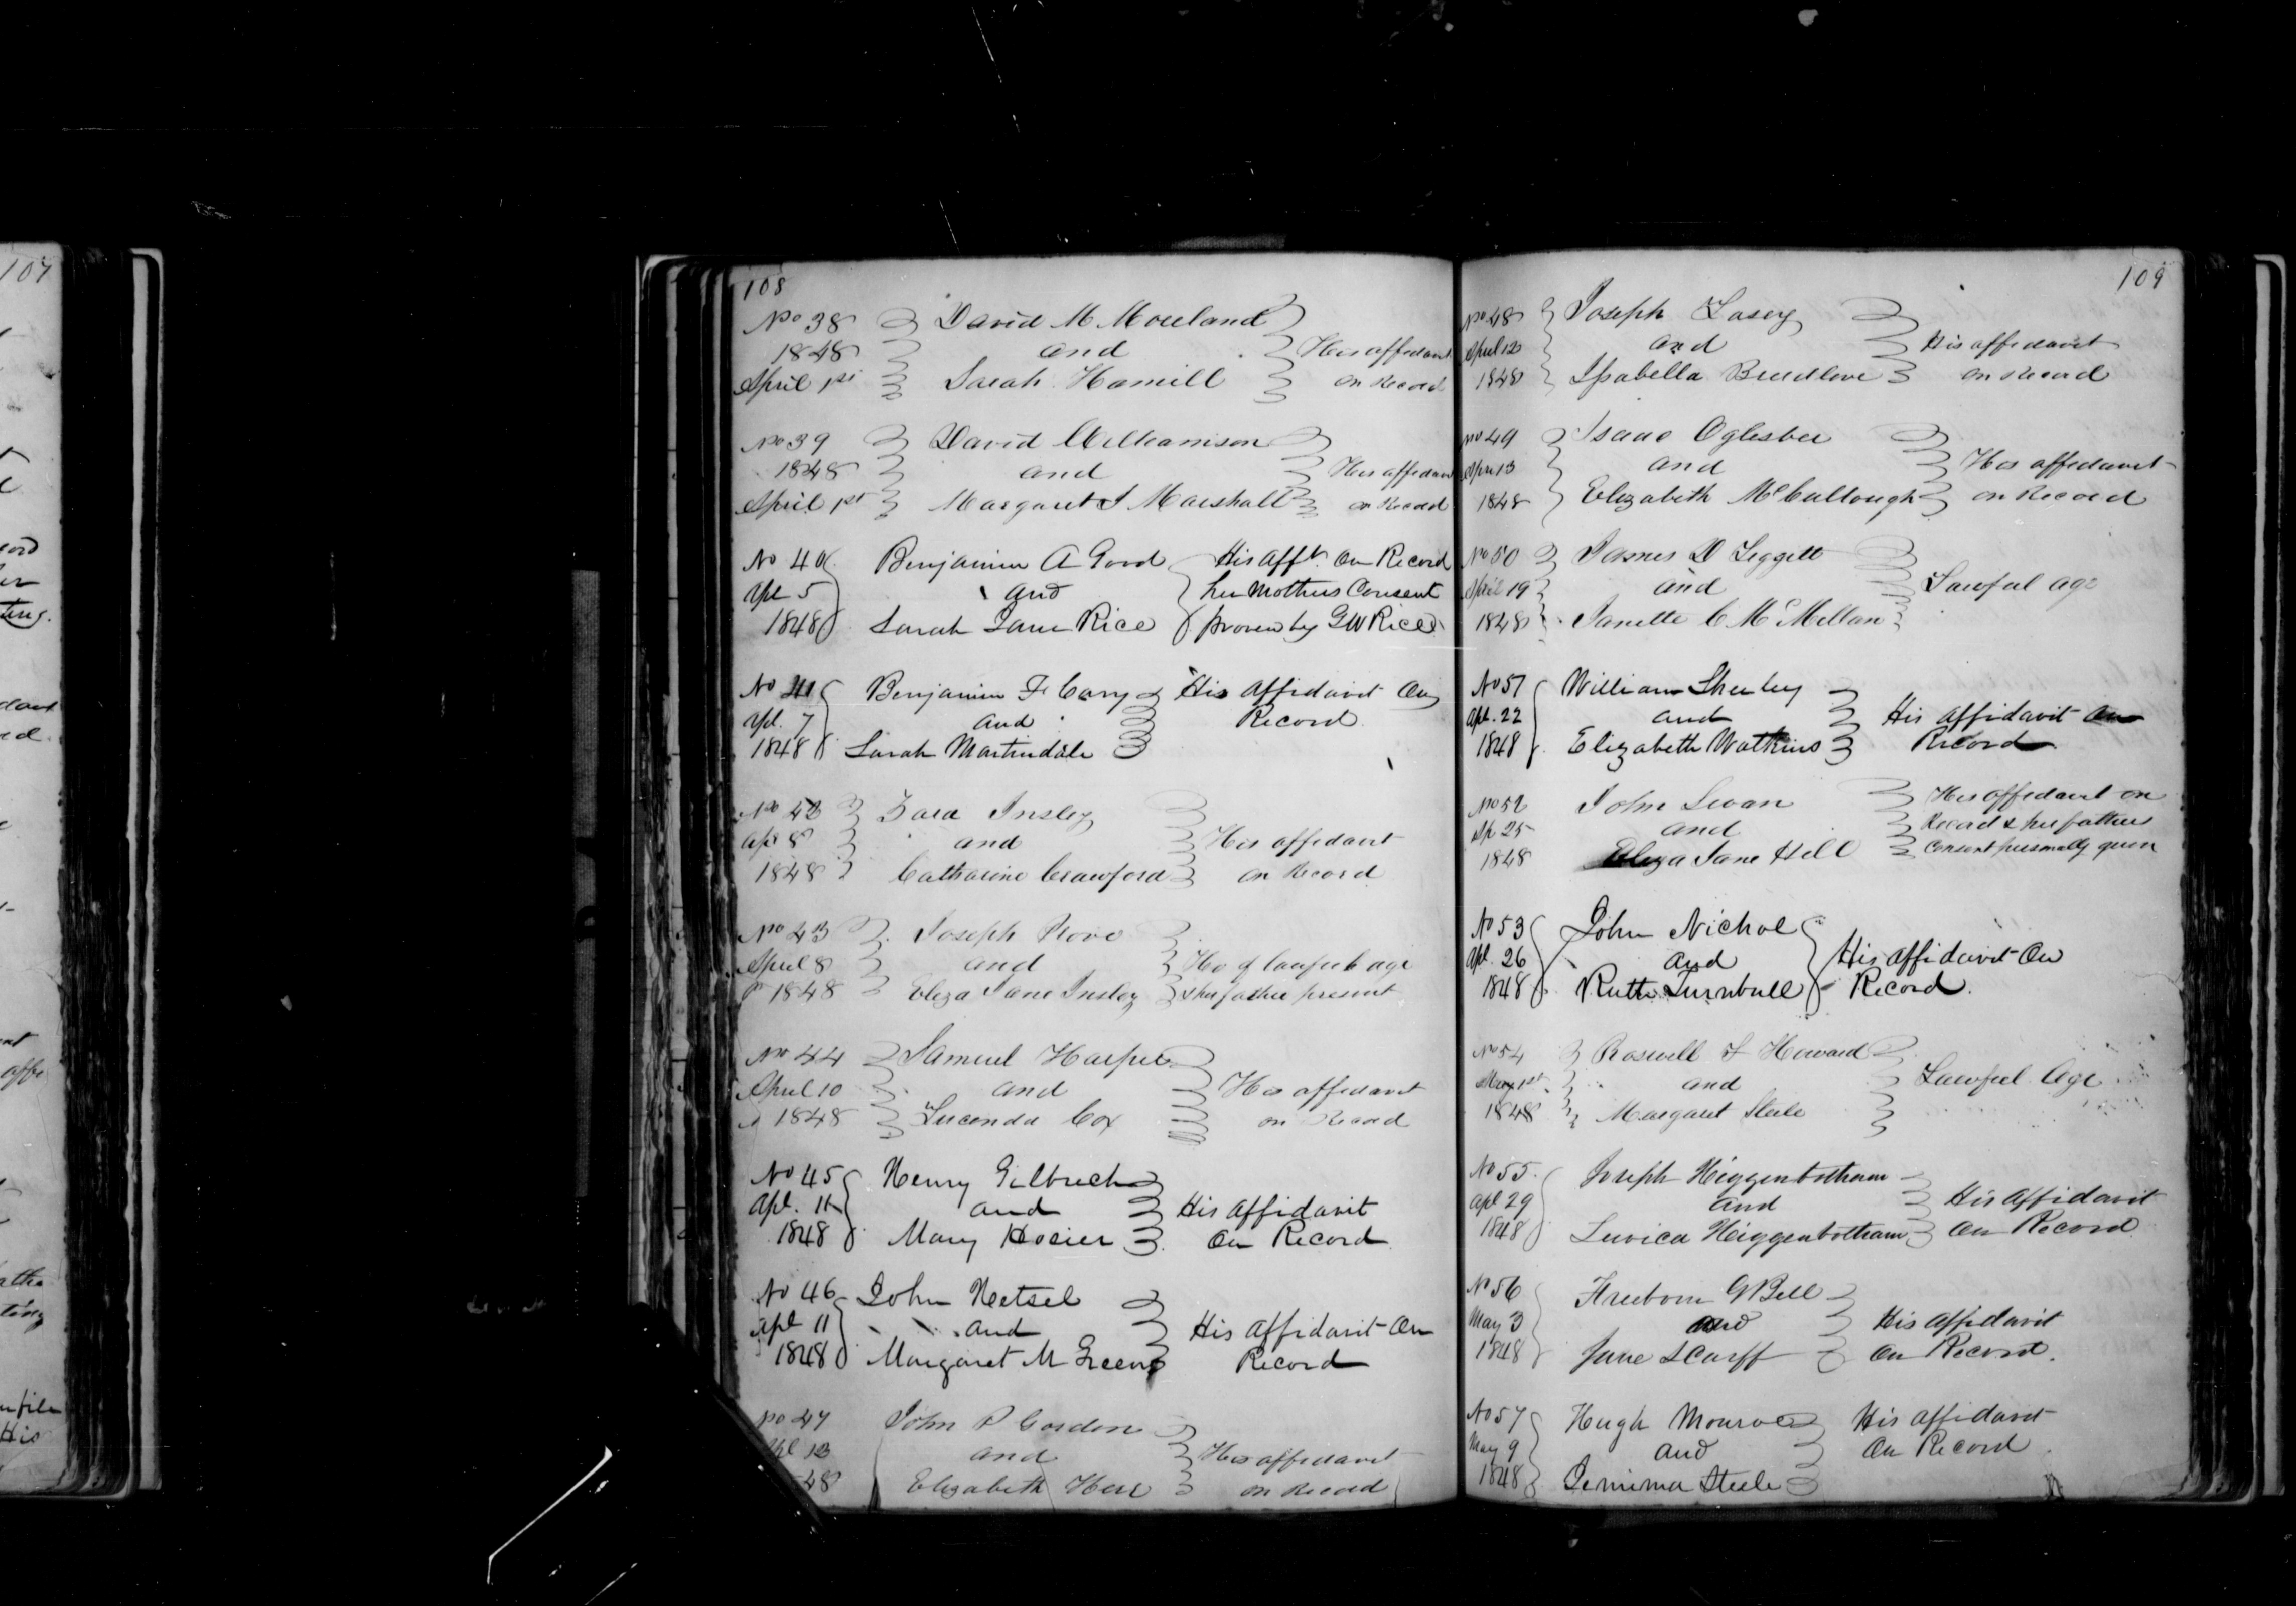 107
108
No 38 David M Moreland
1848 and His affidavit
April 1st Sarah Hamill on Record
No 39 David Williamson
1848 and His affidavit
April 1st Margaret J Marshall on Record
No 40 Benjamin A Good His Afft. On Record
Apl 5 and her Mothers Consent
1848 Sarah Jane Rice proven by G W Rice
No 41 Benjamin F Cary His Affidavit On
Apl. 7 and Record
1848 Sarah Martindale
No 42 Zara Insley
Apr 8 and His affidavit
1848 Catharine Crawford on Record
No 43 Joseph Rowe
April 8 and He of lawful age
1848 Eliza Jane Insley & her father present
No 44 Samuel Harper
April 10 and His affidavit
1848 Lucenda Cox on Record
No 45 Henry Gilbrech
Apl. 11 and His Affidavit
1848 Mary Hosier On Record
No 46 John Hetsel
Apl 11 and His Affidavit On
1848 Margaret M Green Record
No 47 John P Gordon
Apl 12 and His affidavit
48 Elizabeth Herr on Record
109
No 48 Joseph Losey
April 12 and His affidavit
1848 Isabella Breedlove on Record
No 49 Isaac Oglesbee
Apr 13 and His affidavit
1848 Elizabeth McCullough on Record
No 50 James D Leggett
April 19 and Lawful age
1848 Janette C McMellan
No 51 William Sherley
Apl. 22 and His Affidavit On
1848 Elizabeth Watkins Record
No 52 John Swan His affidavit on
Ap 25 and Record & her fathers
1848 Eliza Jane Hill Consent personally given
No 53 John Nichol
Apl. 26 and His affidavit On
1848 Ruth Turnbull Record.
No 54 Roswell F Howard
May 1st and Lawful Age
1848 Margaret Steele
No 55. Joseph Higgenbotham
Apl 29 and His Affidavit
1848 Luvica Higgenbotham On Record
No 56 Freeborn G Bell
May 3 and His Affidavit
1848 Jane Scarff On Record.
No 57 Hugh Monroe His Affidavit
May 9 and On Record
1848 Jemima Steele